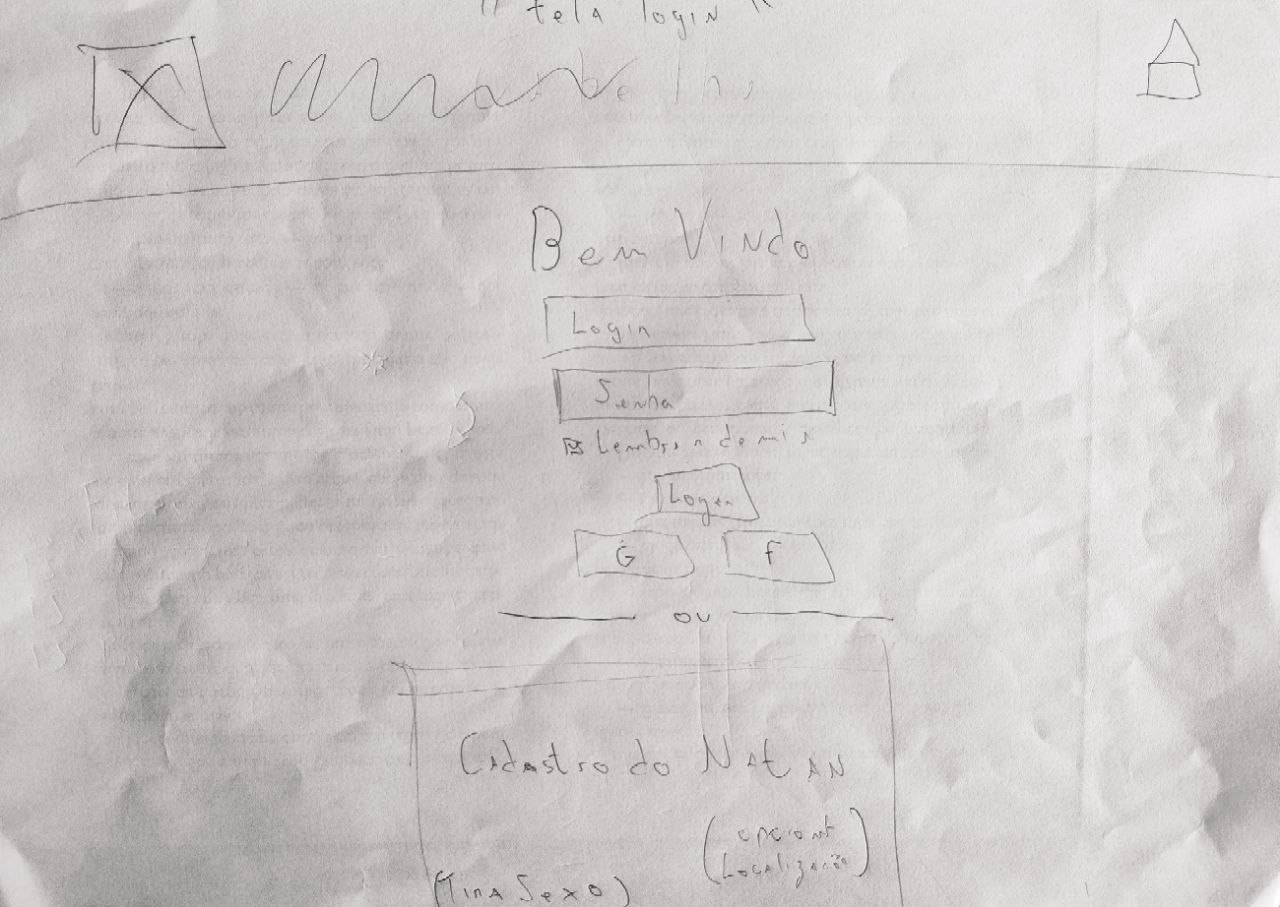 " tela login "
Bem Vindo
Login
Senha
Lembrar de mim
Logar
G F
OU
Cadastro do NATAN
(opcional
Localização)
(Tira Sexo)